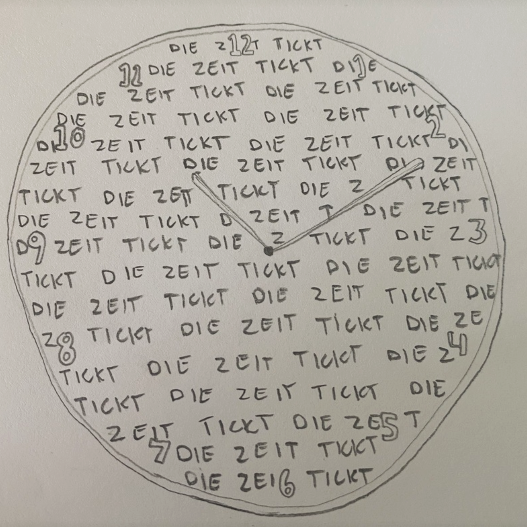 DIE Z12T TICKT
11 DIE ZEIT TICKT D1E
DIE ZEIT TICKT DIE ZEIT TICKT
DIE ZEIT TICKT DIE ZEIT TICKT
D10 ZEIT TICKT DIE ZEIT TICKT 2 DI
ZEIT TICKT DIE ZEIT TICKT DI ZEIT
TICKT DIE ZEIT TICKT DIE Z TICKT
DIE ZEIT TICKT D ZEIT T DIE ZEIT T
D9 ZEIT TICKT DIE Z TICKT DIE Z3
TICKT DIE ZEIT TICKT DIE ZEIT TICKT
DIE ZEIT TICKT DIE ZEIT TICKT DIE
Z8 TICKT DIE ZEIT TICKT DIE ZE
TICKT DIE ZEIT TICKT DIE Z4
TICKT DIE ZEIT TICKT DIE
ZEIT TICKT DIE ZE5T
7 DIE ZEIT TICKT
DIE ZEI6 TICKT